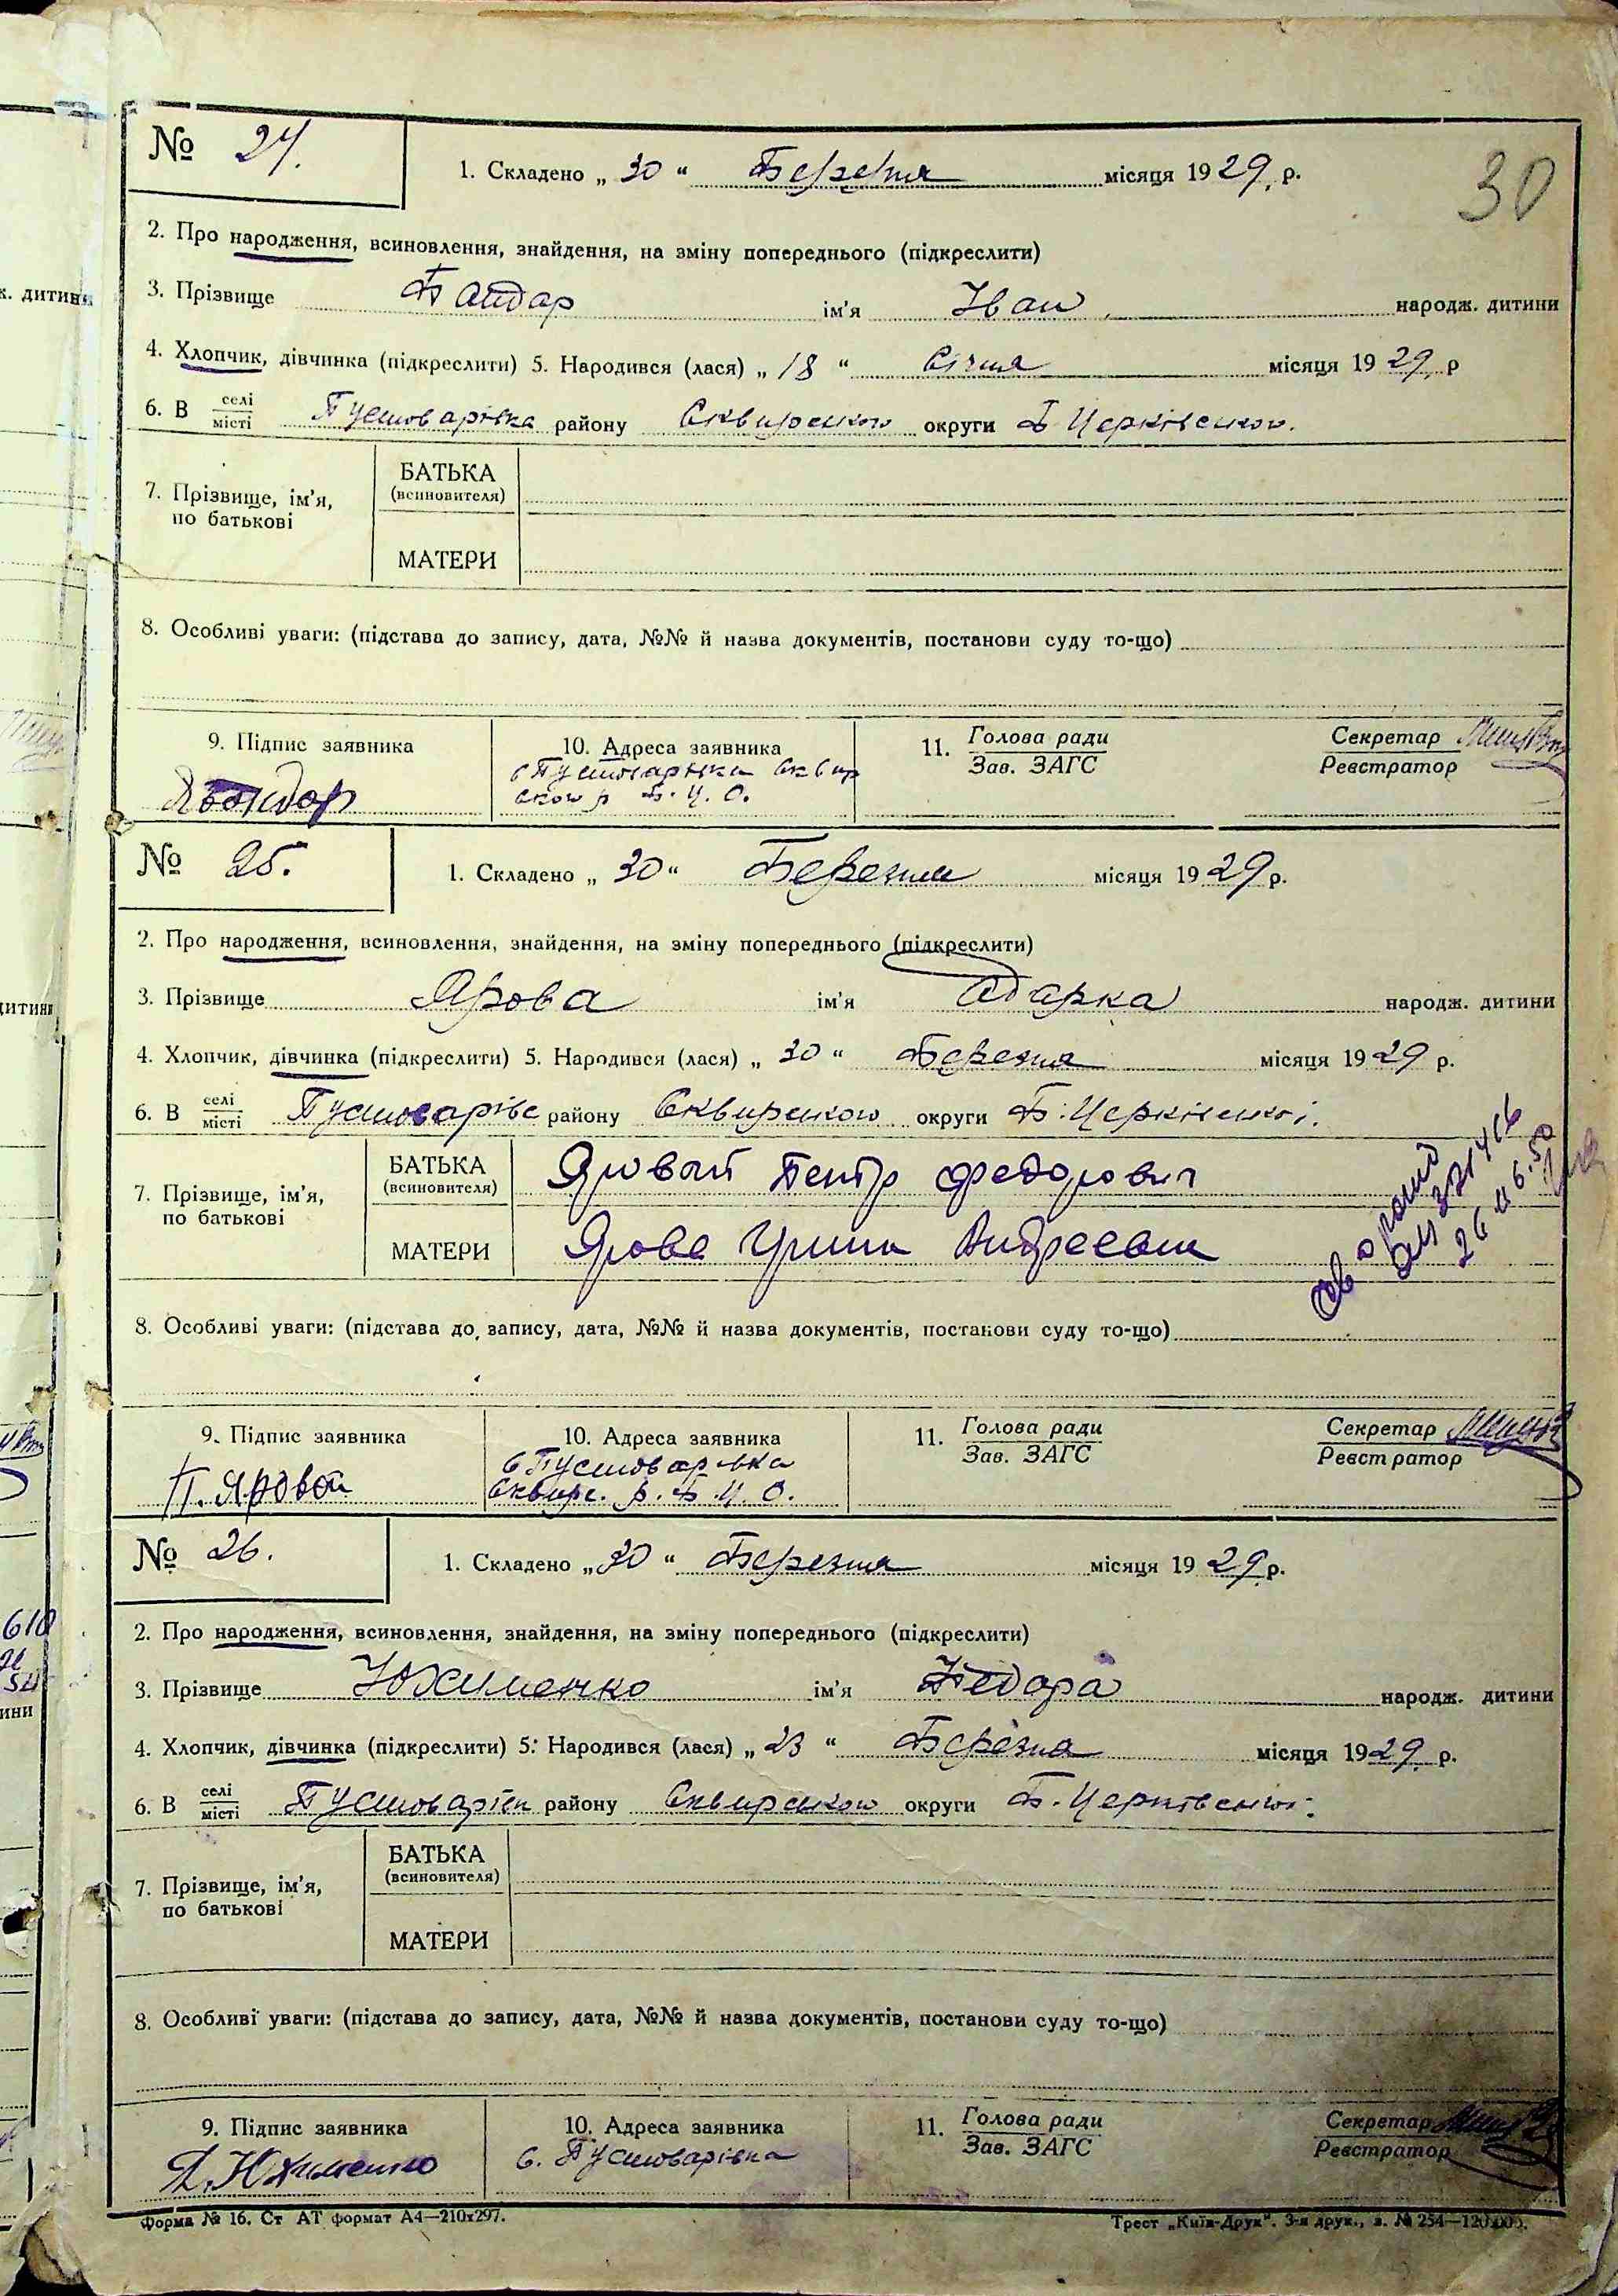 30
№ 24.
1. Складено „ 30 “ Березня місяця 1929, р.
2. Про народження, всиновлення, знайдення, на зміну попереднього (підкреслити)
3. Прізвище Бондар ім'я Іван народж. дитини
4. Хлопчик, дівчинка (підкреслити) 5. Народився (лася) „ 18 “ Січня місяця 1929, р
6. В селі місті Пустоварівка району Сквирського округи Б Церківської.
7. Прізвище, ім'я, по батькові
БАТЬКА (всиновителя)
МАТЕРИ
8. Особливі уваги: (підстава до запису, дата, №№ й назва документів, постанови суду то-що)
9. Підпис заявника
Бондар
10. Адреса заявника
с Пустоварівка Сквир
ського р Б. Ц. О.
11. Голова ради
Зав. ЗАГС
Секретар
Реєстратор
№ 25.
1. Складено „ 30 “ Березня місяця 1929 р.
2. Про народження, всиновлення, знайдення, на зміну попереднього (підкреслити)
3. Прізвище Ярова ім'я Одарка народж. дитини
4. Хлопчик, дівчинка (підкреслити) 5. Народився (лася) „ 30 “ Березня місяця 1929 р.
6. В селі місті Пустоварівс району Сквирського округи Б. Церківської.
7. Прізвище, ім'я, по батькові
БАТЬКА (всиновителя) Яровый Петр Федорович
МАТЕРИ Ярова Андреевна
8. Особливі уваги: (підстава до запису, дата, №№ й назва документів, постанови суду то-що)
9. Підпис заявника
П. Яровой
10. Адреса заявника
с Пустоварівка
Сквирс. р. Б. Ц. О.
11. Голова ради
Зав. ЗАГС
Секретар
Реєстратор
№ 26.
1. Складено „ 30 “ Березня місяця 1929 р.
2. Про народження, всиновлення, знайдення, на зміну попереднього (підкреслити)
3. Прізвище Юхименко ім'я народж. дитини
4. Хлопчик, дівчинка (підкреслити) 5. Народився (лася) „ 23 “ Березня місяця 1929 р.
6. В селі місті Пустоварівк району Сквирського округи Б. Церківської.
7. Прізвище, ім'я, по батькові
БАТЬКА (всиновителя)
МАТЕРИ
8. Особливі уваги: (підстава до запису, дата, №№ й назва документів, постанови суду то-що)
9. Підпис заявника
Юхименко
10. Адреса заявника
с. Пустоварівка
11. Голова ради
Зав. ЗАГС
Секретар
Реєстратор
Форма № 16. Ст АТ формат А4—210х297.
Трест „Київ-Друк“. 3-я друк., з. № 254—120.000.